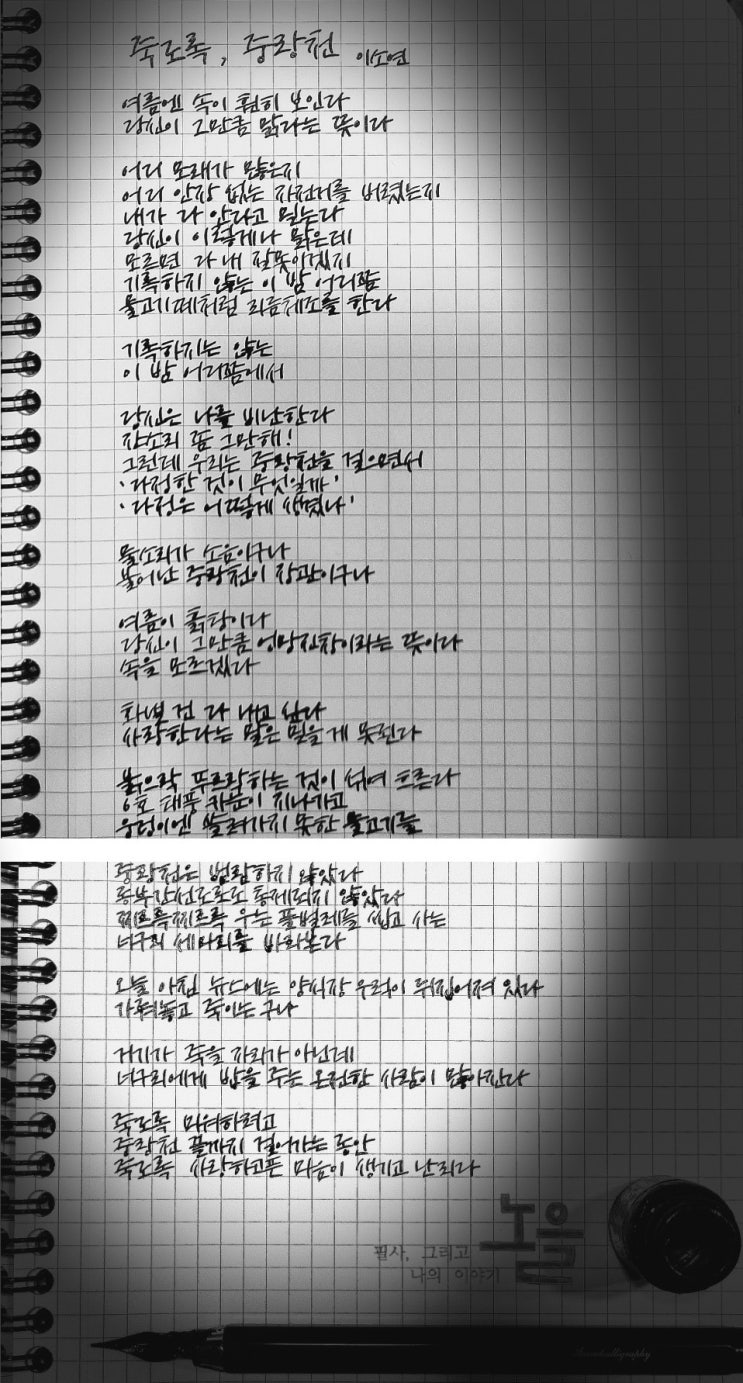 죽도록, 중랑천 이소연
여름엔 속이 훤히 보인다
당신이 그만큼 맑다는 뜻이다
어디 모래가 많은지
어디 안장 없는 자전거를 버렸는지
내가 다 안다고 믿는다
당신이 이렇게나 맑은데
모르면 다 내 잘못이겠지
기록하지 않는 이 밤 어디쯤
물고기떼처럼 리듬체조를 한다
기록하지는 않는
이 밤 어디쯤에서
당신은 나를 비난한다
잔소리 좀 그만해!
그런데 우리는 중랑천을 걸으면서
'다정한 것이 무엇일까'
'다정은 어떻게 생겼나'
물소리가 소음이구나
불어난 중랑천이 장관이구나
여름이 흙탕이다
당신이 그만큼 엉망진창이라는 뜻이다
속을 모르겠다
화낼 건 다 내고 산다
사랑한다는 말은 믿을 게 못된다
붉으락 푸르락하는 것이 섞여 흐른다
6호 태풍 카눈이 지나가고
웅덩이엔 쓸려가지 못한 물고기들
중랑천은 범람하지 않았다
동부간선도로도 통제되지 않았다
찌르륵찌르륵 우는 풀벌레를 씹고 사는
너구리 세마리를 바라본다
오늘 아침 뉴스에는 양식장 우럭이 뒤집어져 있다
가둬놓고 죽이는구나
거기가 죽을 자리가 아닌데
너구리에게 밥을 주는 온전한 사람이 많아진다
죽도록 미워하려고
중랑천 끝까지 걸어가는 동안
죽도록 사랑하고픈 마음이 생기고 난리다
필사, 그리고
나의 이야기
노을